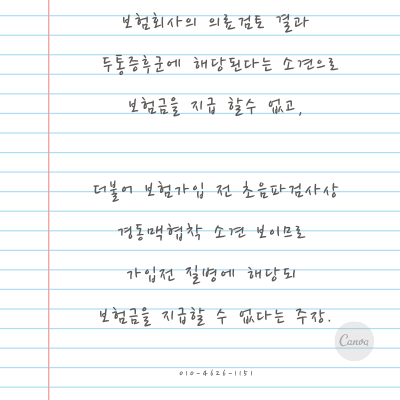 보험회사의 의료검토 결과
두통증후군에 해당된다는 소견으로
보험금을 지급 할수 없고,
더불어 보험가입 전 초음파검사상
경동맥협착 소견 보이므로
가입전 질병에 해당되
보험금을 지급할 수 없다는 주장.
Canva
010-4626-1151